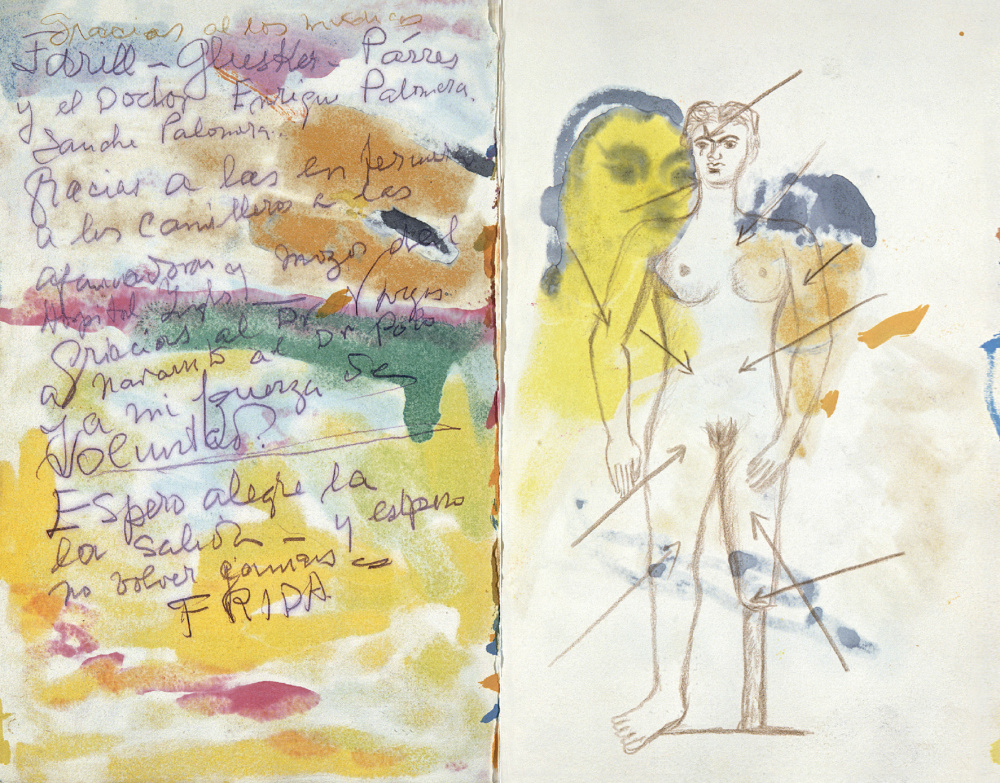 Gracias a los medicos
Farill – Glusker – Párres
y el Doctor Enrique Palomera.
Sanche Palomera.
Gracias a las enfermeras
a los Camilleros a las
afanadoras y mozos del
Hospital Inglés –
Gracias al Dr
a Navarro al Dr Polo
y a mi fuerza de
Voluntad.
Espero alegre la
la salida – y espero
no volver jamas
FRIDA